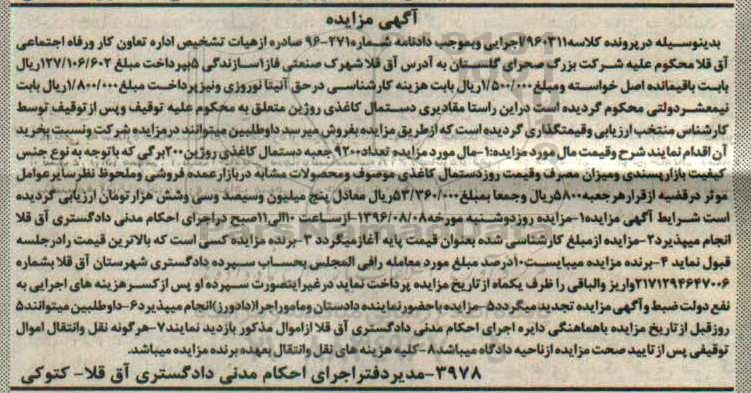 آگهی مزایده
بدینوسیله درپرونده کلاسه۹۶۰۳۱۱/اجرایی وبموجب دادنامه شماره۲۷۱-۹۶ صادره ازهیات تشخیص اداره تعاون کار ورفاه اجتماعی
آق قلا محکوم علیه شرکت بزرگ صحرای گلستان به آدرس آق قلا شهرک صنعتی فاز۱سازندگی ۵بپرداخت مبلغ ۱۲۷/۱۰۶/۶۰۲ریال
بابت باقیمانده اصل خواسته ومبلغ۱/۵۰۰/۰۰۰ریال بابت هزینه کارشناسی درحق آنیتا نوروزی ونیزپرداخت مبلغ۱/۸۰۰/۰۰۰ریال بابت
نیمعشردولتی محکوم گردیده است دراین راستا مقادیری دستمال کاغذی روژین متعلق به محکوم علیه توقیف وپس ازتوقیف توسط
کارشناس منتخب ارزیابی وقیمتگذاری گردیده است که ازطریق مزایده بفروش میرسد داوطلبین میتوانند درمزایده شرکت ونسبت بخرید
آن اقدام نمایند شرح وقیمت مال مورد مزایده:۱-حال مورد مزایده تعداد۹۲۰۰جعبه دستمال کاغذی روژین۲۰۰برگی که باتوجه به نوع جنس
کیفیت بازارپسندی ومیزان مصرف وقیمت روزدستمال کاغذی موصوف ومحصولات مشابه دربازارعمده فروشی وملحوظ نظرسایرعوامل
موثر درقضیه ازقرارهرجعبه۵۸۰۰ریال وجمعا بمبلغ۵۳/۳۶۰/۰۰۰ریال معادل پنج میلیون وسیصد وسی وشش هزارتومان ارزیابی گردیده
است شرایط آگهی مزایده۱-مزایده روزدوشنبه مورخه۱۳۹۶/۰۸/۰۸-ازساعت ۱۰الی۱۱صبح دراجرای احکام مدنی دادگستری آق قلا
انجام میپذیرد۲-مزایده ازمبلغ کارشناسی شده بعنوان قیمت پایه آغازمیگردد ۳-برنده مزایده کسی است که بالاترین قیمت رادرجلسه
قبول نماید ۴-برنده مزایده میبایست۱۰درصد مبلغ مورد معامله رافی المجلس بحساب سپرده دادگستری شهرستان آق قلا بشماره
۲۱۷۱۲۹۴۶۴۷۰۰۶واریز والباقی را ظرف یکماه ازتاریخ مزایده پرداخت نماید درغیراینصورت سپرده او پس ازکسرهزینه های اجرایی به
نفع دولت ضبط وآگهی مزایده تجدید میگردد۵-مزایده باحضورنماینده دادستان ومامور اجرا(دادورز)انجام میپذیرد۶-داوطلبین میتوانند۵
روزقبل ازتاریخ مزایده باهماهنگی دایره اجرای احکام مدنی دادگستری آق قلا ازاموال مذکور بازدید نمایند۷-هرگونه نقل وانتقال اموال
توقیفی پس ازتایید صحت مزایده ازناحیه دادگاه میباشد۸-کلیه هزینه های نقل وانتقال بعهده برنده مزایده میباشد.
۳۹۷۸-مدیردفتراجرای احکام مدنی دادگستری آق قلا- کتوکی